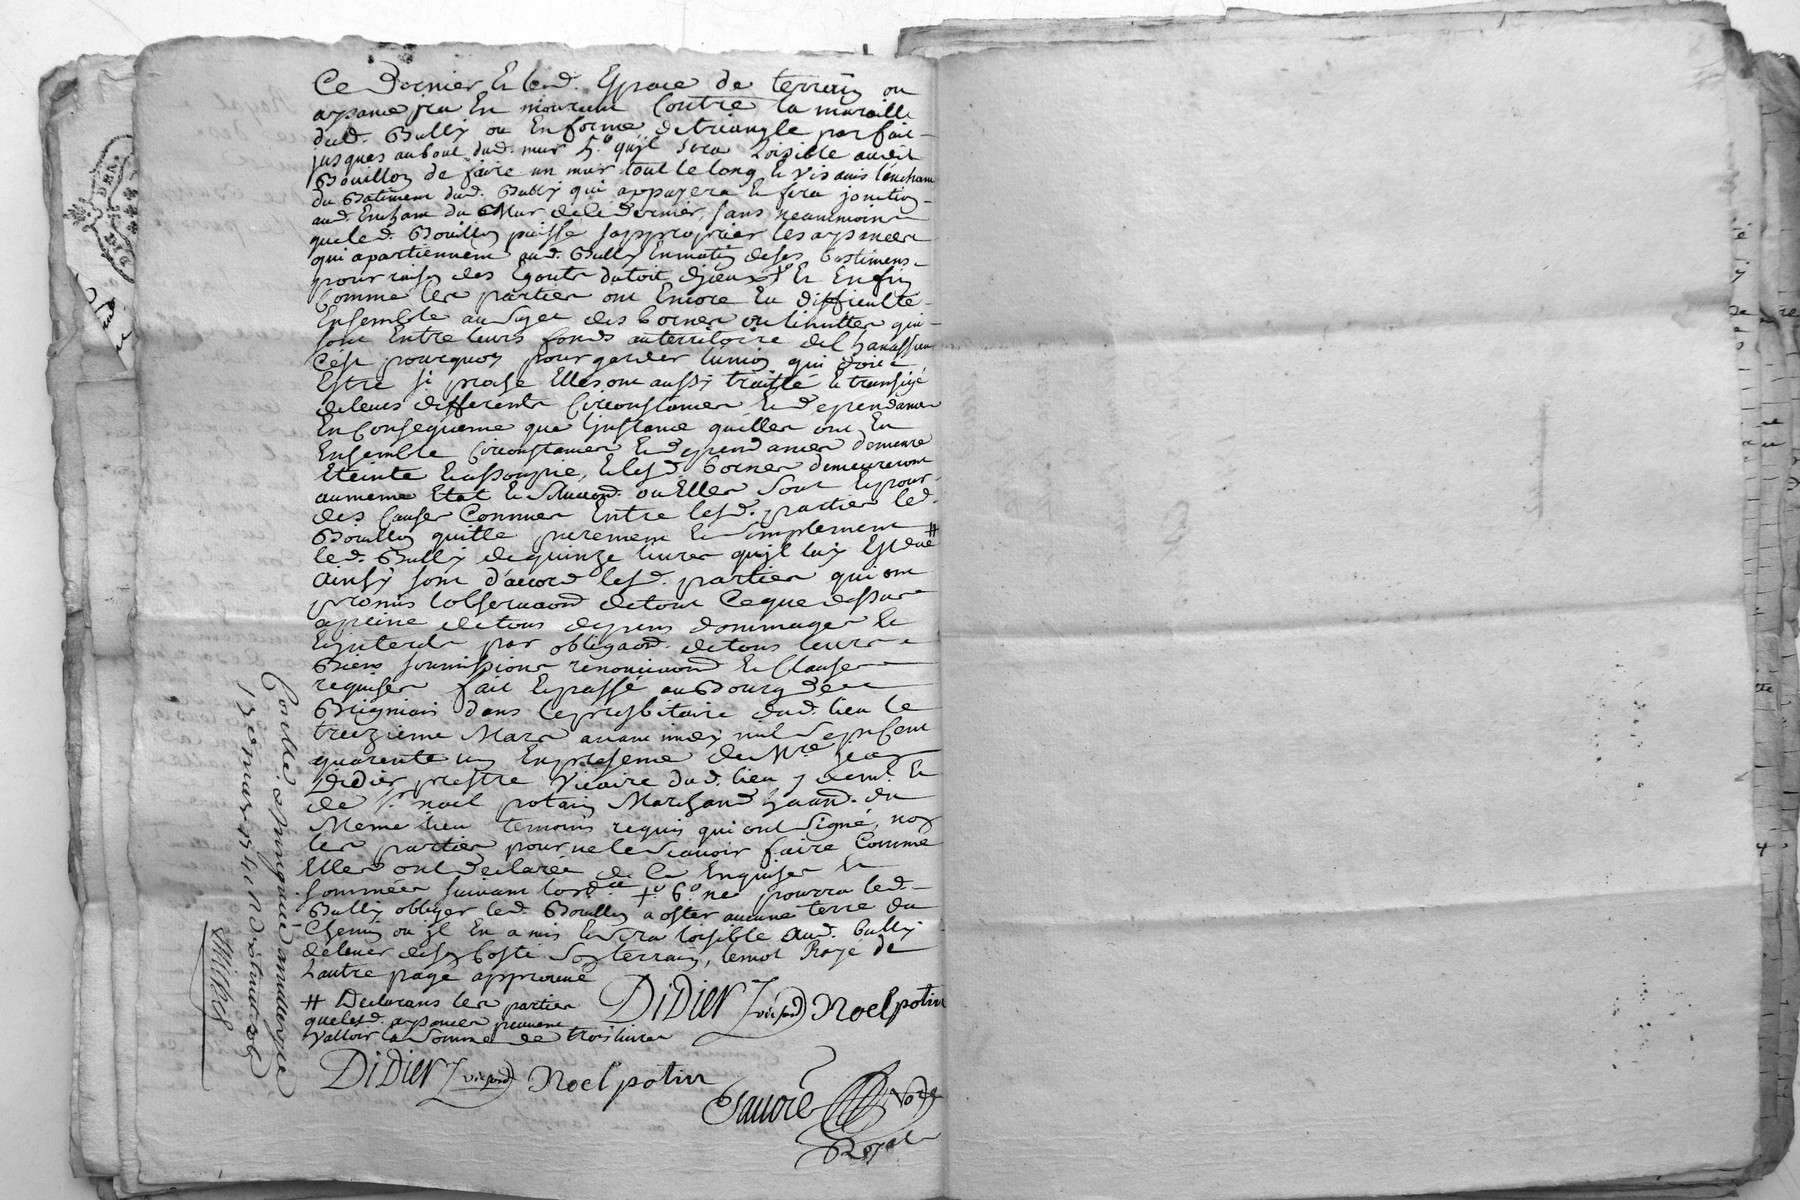 Ce Dernier Et led. Espace de terrain ou
aysance ira En mourant Contre la muraille
dud. Bully ou En forme de triangle parfait
jusques au bout dud. mur 5.º quil sera Loisible audit
Bouillon de faire un mur tout le long & vis avis
du Batiment dud. Bully qui appuyera & fera jonction
aud. du Mur de le Dernier, sans neanmoins
que led. Bouillon puisse sapproprier les aysances
qui apartiennent aud. Bully de ses Bastimens
pour raison des Egouts du toit Et Enfin
Comme les parties ont Encore Eu difficulté
Ensemble au Sujet des bornes ou limittes qui
sont Entre leurs fonds au territoire del
Cest pourquoy pour garder lunion qui doit
Estre si proche Elles ont aussy traitté & transigé
de leurs differents Circonstances & Dependances
En Consequence que Linstance quelles ont Eu
Ensemble Circonstances & dependances demeure
Eteinte & assoupie, & lesd. bornes demeureront
au meme Etat & Situaond. ou Elles Sont & pour
des Causes Connues Entre lesd. parties led.
Bouillon quitte purement & Simplement
led. Bully de quinze livres quil luy Est due #
Ainsy sont d'accord lesd. parties qui ont
promis lobservaond de tout Ceque dessus
a peine de tous depens dommages &
Interests par obligaond. de tous leurs
Biens soumissions renonciaond & Clauses
requises fait & passé au Bourg de
Brignais dans le presbitaire dud. lieu le
treizieme Mars avant midy mil Sept Cent
quarente un En presence de Mre Jean
Didier prestre Vicaire dud. lieu y demt. &
de sr. noel potain Marchand dud.
Meme lieu temoins requis qui ont Signé, non
les parties pour ne le Scavoir faire Comme
Elles ont Declarée de Ce Enquises &
Sommées suivant lordce 6º ne pourra led.
Bully obliger led. Bouillon a oster aucune terre du
Chemin ou jl En a mis & Sera loisible Aud. bully
de lever de son Costé Son terrain, lemot Rayé de
Lautre page approuvé
# Declarans les parties
que lesd. aysances peuvent
Valloir la Somme de trois livres
DiDier Noel potin
DiDier Noel potin
Savoré
Royal
Conllé
13 mars 1741